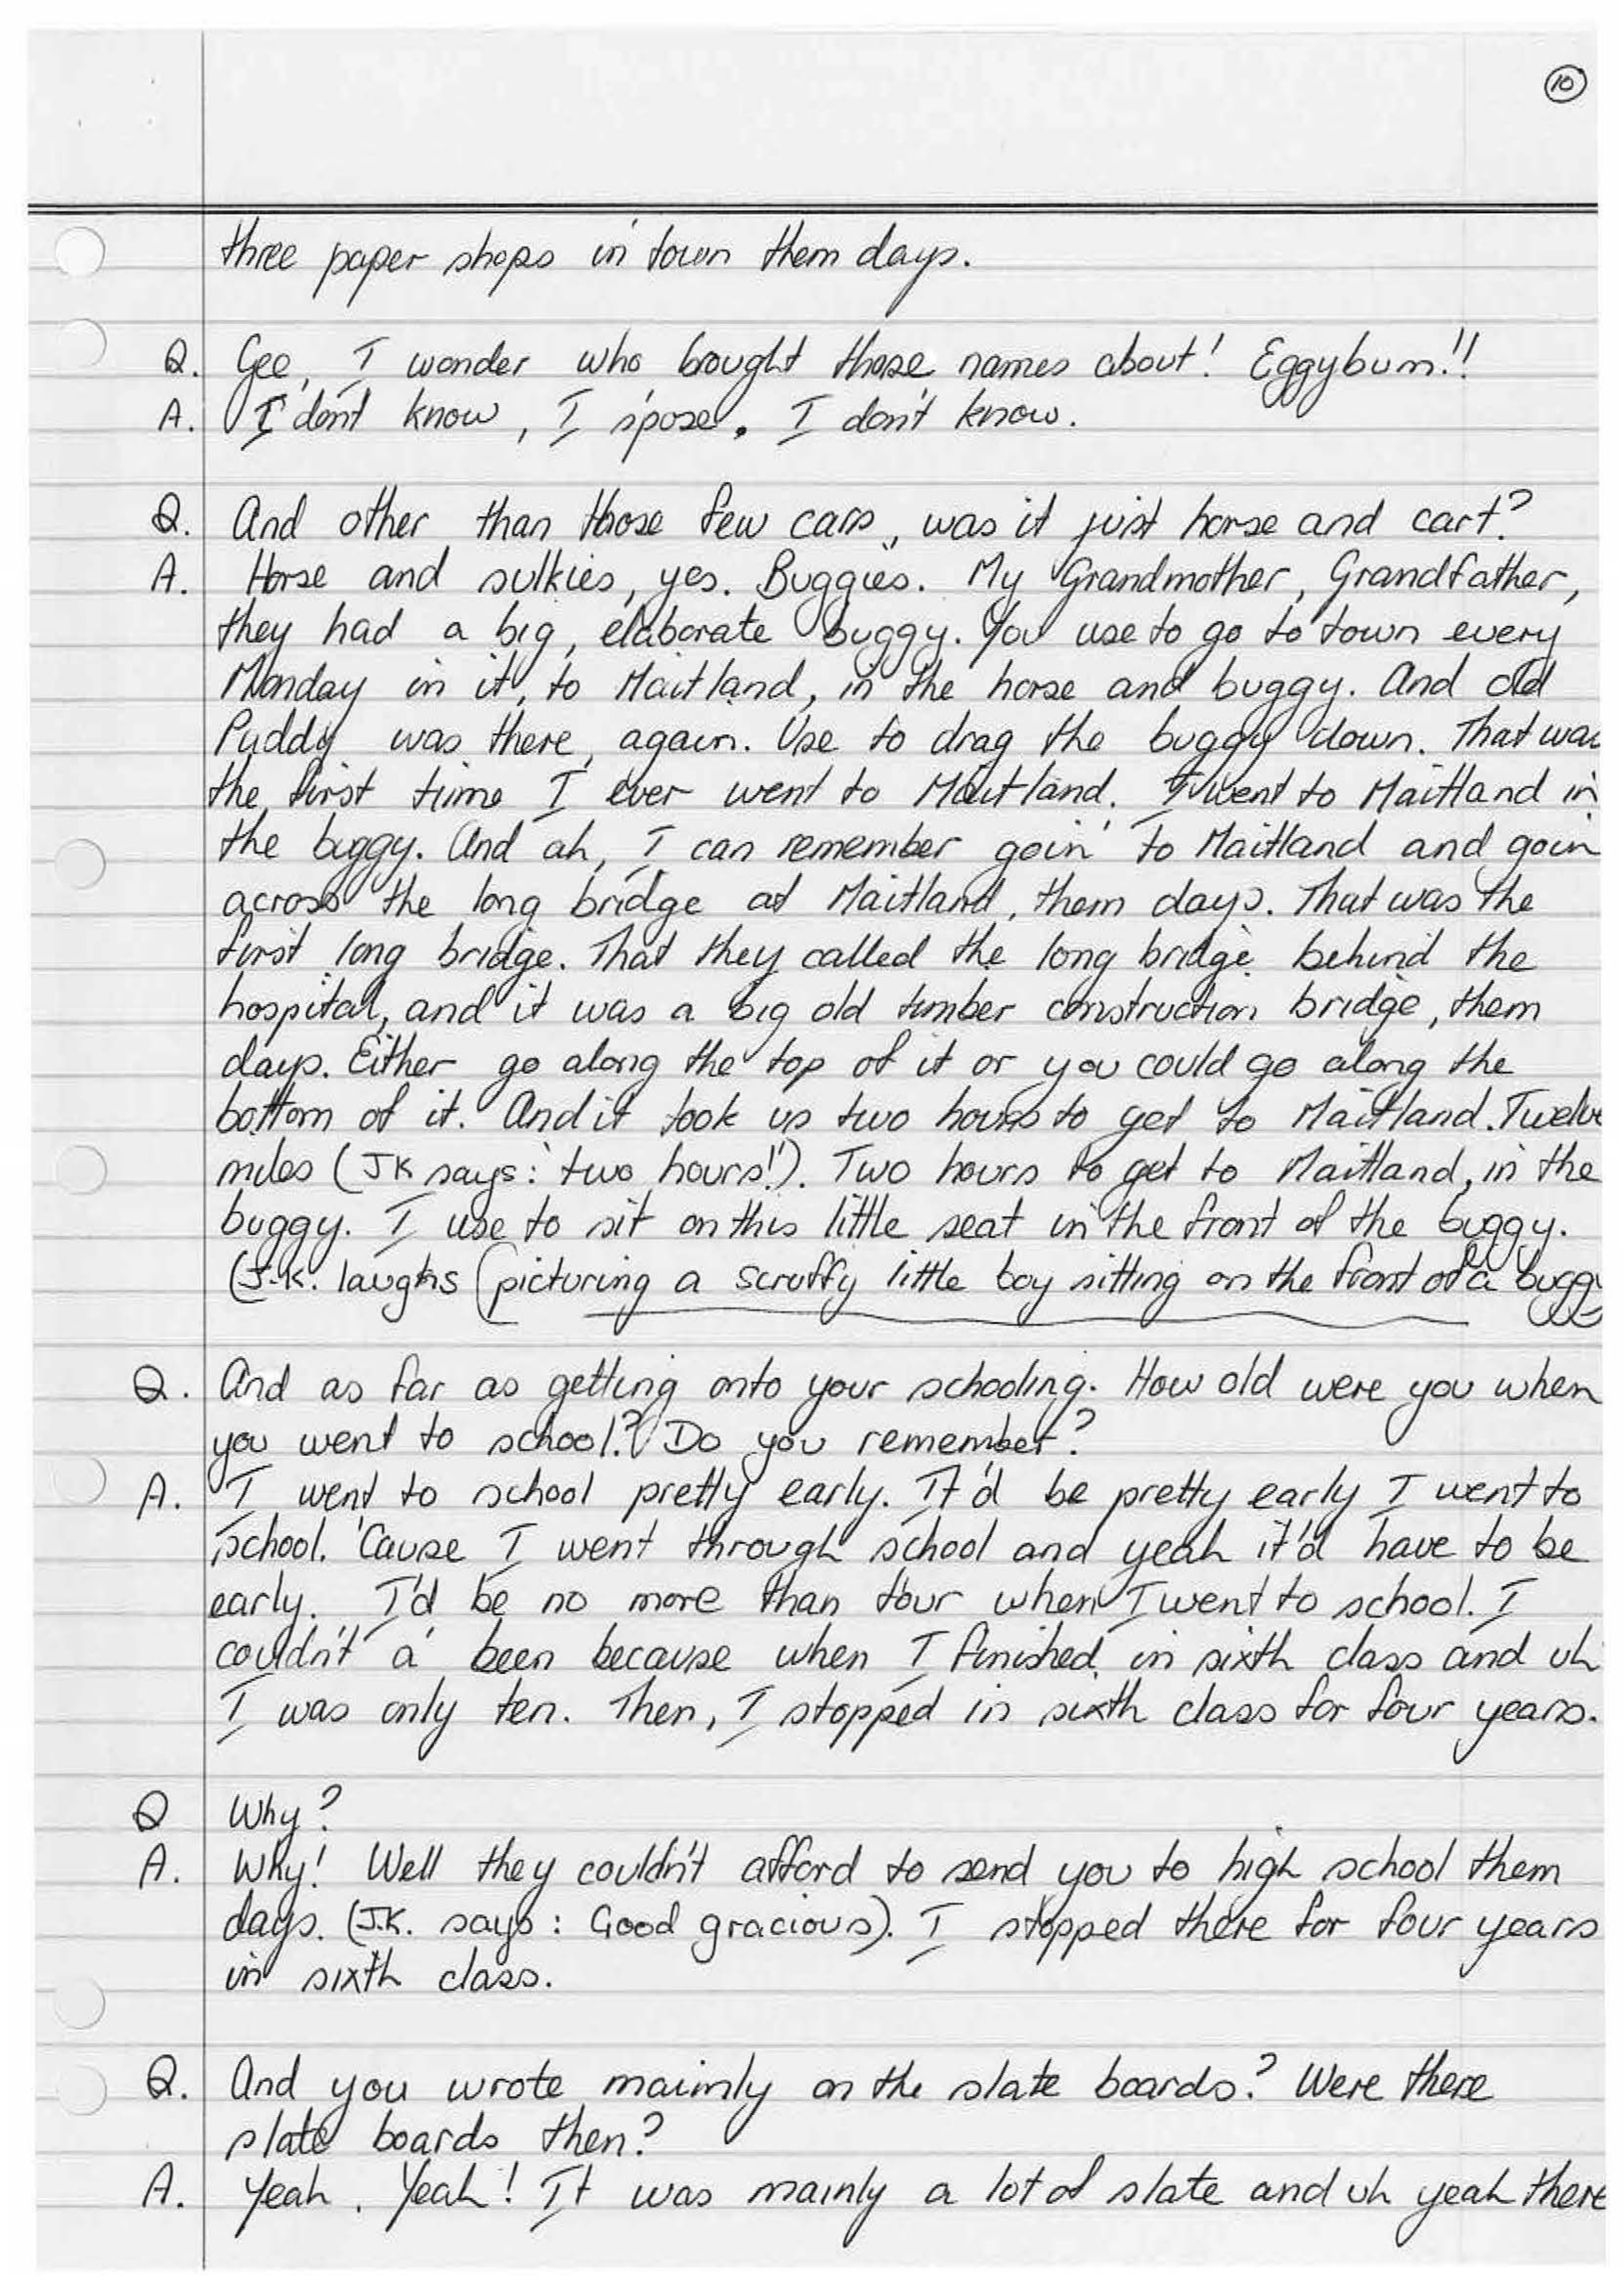 10
three paper shops in town them days.
Q. Gee, I wonder who brought those names about! Eggybum!!
A. I don't know, I s'pose. I don't know.
Q. And other than those few cars, was it just horse and cart?
A. Horse and sulkies, yes. Buggies. My Grandmother, Grandfather,
they had a big, elaborate buggy. You use to go to town every
Monday in it, to Maitland, in the horse and buggy. And old
Puddy was there, again. Use to drag the buggy down. That was
the first time I ever went to Maitland. I went to Maitland in
the buggy. And ah, I can remember goin' to Maitland and goin
across the long bridge at Maitland, them days. That was the
first long bridge. That they called the long bridge behind the
hospital, and it was a big old timber construction bridge, them
days. Either go along the top of it or you could go along the
bottom of it. And it took us two hours to get to Maitland. Twelve
miles (JK says: 'two hours!'). Two hours to get to Maitland, in the
buggy. I use to sit on this little seat in the front of the buggy.
(J.K. laughs (picturing a scruffy little boy sitting on the front of a buggy
Q. And as far as getting onto your schooling. How old were you when
you went to school.? Do you remember?
A. I went to school pretty early. It'd be pretty early I went to
school. 'Cause I went through school and yeah it'd have to be
early. I'd be no more than four when I went to school. I
couldn't a' been because when I finished in sixth class and uh
I was only ten. Then, I stopped in sixth class for four years.
Q Why?
A. Why! Well they couldn't afford to send you to high school them
days. (J.K. says: Good gracious). I stopped there for four years
in sixth class.
Q. And you wrote mainly on the slate boards? Were there
slate boards then?
A. Yeah. Yeah! It was mainly a lot of slate and uh yeah there